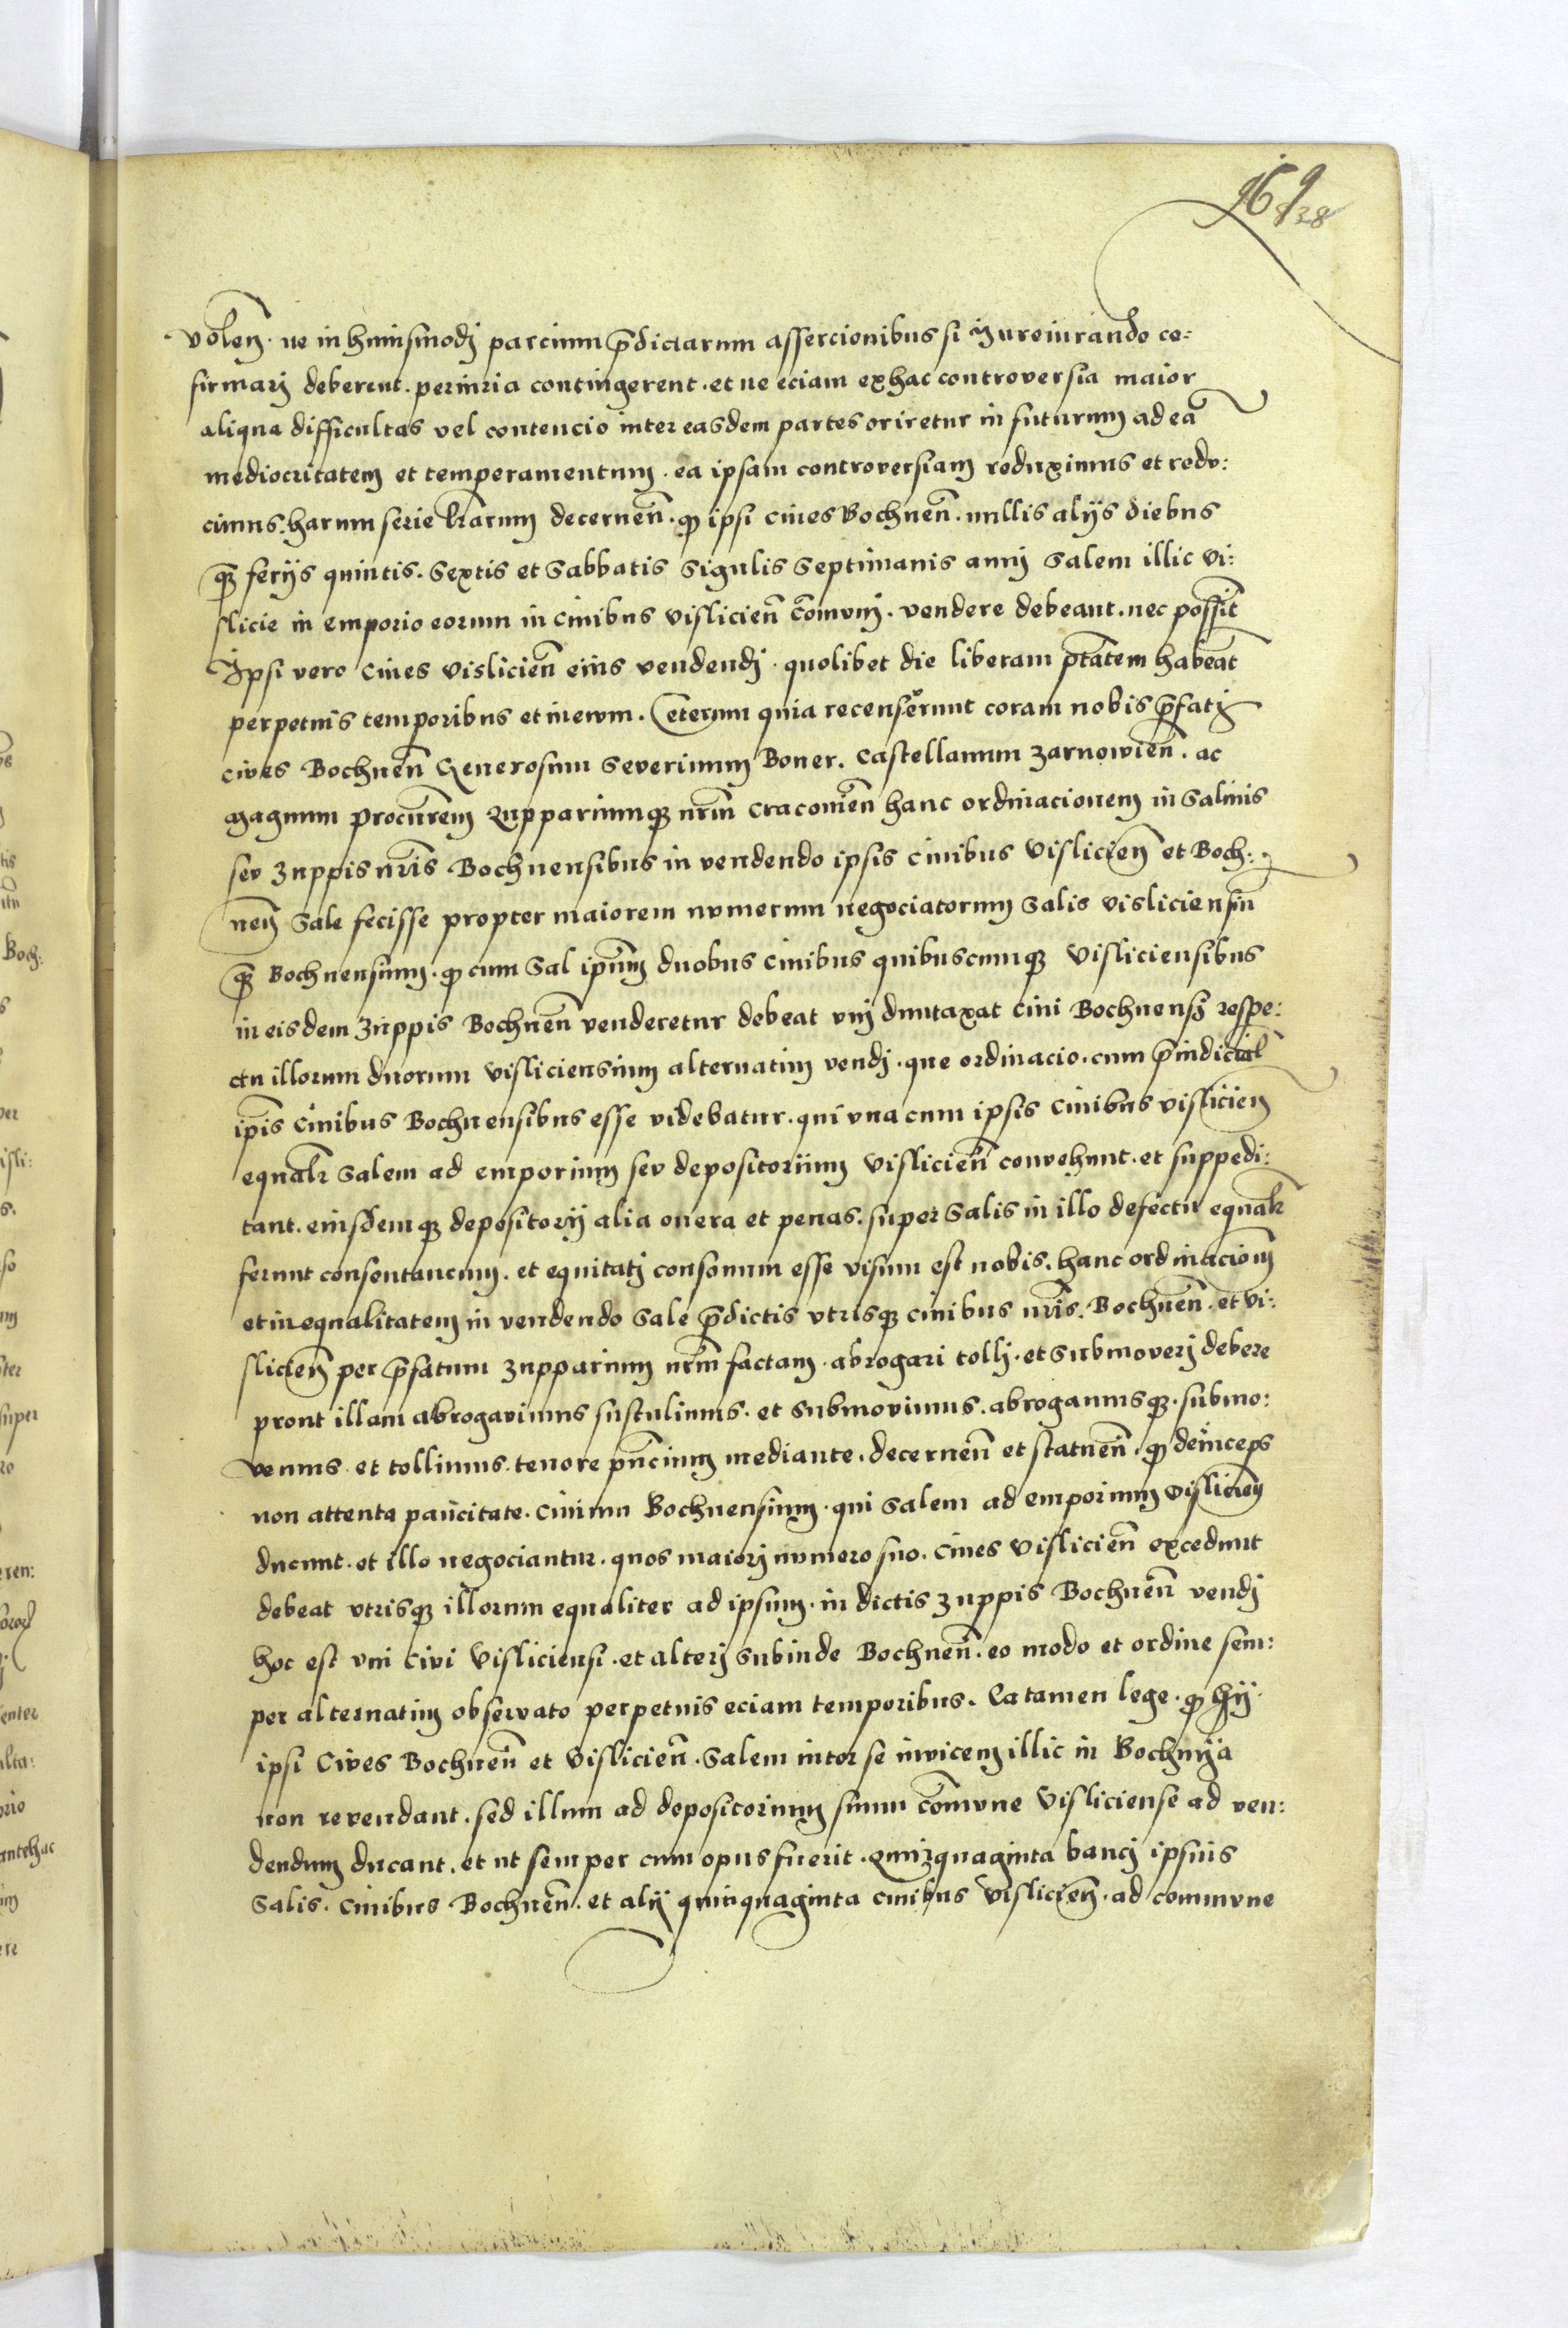 169
838
volen̄. ne in huiusmodj parcium p̄dictarum assercionibus si Jureiurando cō:
firmarj deberent. periuria contingerent. et ne eciam ex hac controversia maior
aliqua difficultas vel contencio inter easdem partes oriretur in futurum ad eā
mediocritatem et temperamentum. ea ipsam controversiam reduximus et redu:
cimus. harum serie l̄rarum decernen̄. ꝙ ipsi ciues Bochnen̄. nullis alijs diebus
qꝫ ferijs quintis. Sextis et Sabbatis Sigulis Septimanis annj Salem illic vi:
slicie in emporio eorum in ciuibus vislicien̄ com̄vnj. vendere debeant. nec possīt
Ipsi vero Ciues vislicien̄ eius vendendj. quolibet die liberam p̄tatem habeāt
perpetuis temporibus et in ewm. Ceterum quia recenserunt coram nobis p̄fatj
cives Bochnen̄ Generosum Severinum Boner. Castellanum Zarnowien̄. ac
Magnum procur̄em Zuppariumqꝫ nr̄m Cracouien̄ hanc ordinacionem in Salinis
sev Zuppis nr̄is Bochnensibus in vendendo ipsis ciuibus Vislicien̄ et Boch:
nen̄ Sale fecisse propter maiorem nvmerum negociatorum Salis visliciensiū
qꝫ Bochnensium. ꝙ cum Sal ip̄um duobus Ciuibus quibuscumqꝫ Visliciensibus
in eisdem Zuppis Bochnen̄ venderetur debeat vnj duntaxat Ciui Bochnensi respe:
ctu illorum duorum Visliciensium alternatim vendj. que ordinacio. cum p̄iudicial̄
ip̄is Ciuibus Bochnensibus esse videbatur. qui vna cum ipsis Ciuibus vislicien̄
equalr̄ Salem ad emporium sev depositorium Vislicien̄ convehunt. et suppedi:
tant. eiusdemqꝫ depositorij alia onera et penas. super Salis in illo defectu equalr̄
ferunt consentaneum. et equitatj consonum esse visum est nobis. hanc ordinacionē
et inequalitatem in vendendo Sale p̄dictis vtrisqꝫ ciuibus nr̄is. Bochnen̄. et Vi:
slicien̄ per p̄fatum Zupparium nr̄m factam. abrogari tollj. et Submoverj debere
prout illam abrogavimus sustulimus. et Submovimus. abrogamusqꝫ. submo:
vemus. et tollimus. tenore pn̄cium mediante. decernen̄ et statuen̄. ꝙ deinceps
non attenta paucitate. Ciuium Bochnensium. qui Salem ad emporium Vislicien̄
ducunt. et illo negociantur. quos maiorj nvmero suo. Ciues Vislicien̄ excedunt
debeat vtrisqꝫ illorum equaliter ad ipsum. in dictis Zuppis Bochnen̄ vendj
hoc est vni Civi Visliciensi. et alterj Subinde Bochnen̄. eo modo et ordine sem:
per alternatim observato perpetuis eciam temporibus. Ea tamen lege. ꝙ hij
ipsi Cives Bochnen̄ et Vislicien̄. Salem inter se invicem illic in Bochnija
non revendant. sed illum ad depositorium suum com̄vne Visliciense ad ven:
dendum ducant. et ut semper cum opus fuerit. Quinquaginta bancj ipsius
Salis. Ciuibus Bochnen̄. et alij quinquaginta ciuibus Vislicien̄. ad commvne